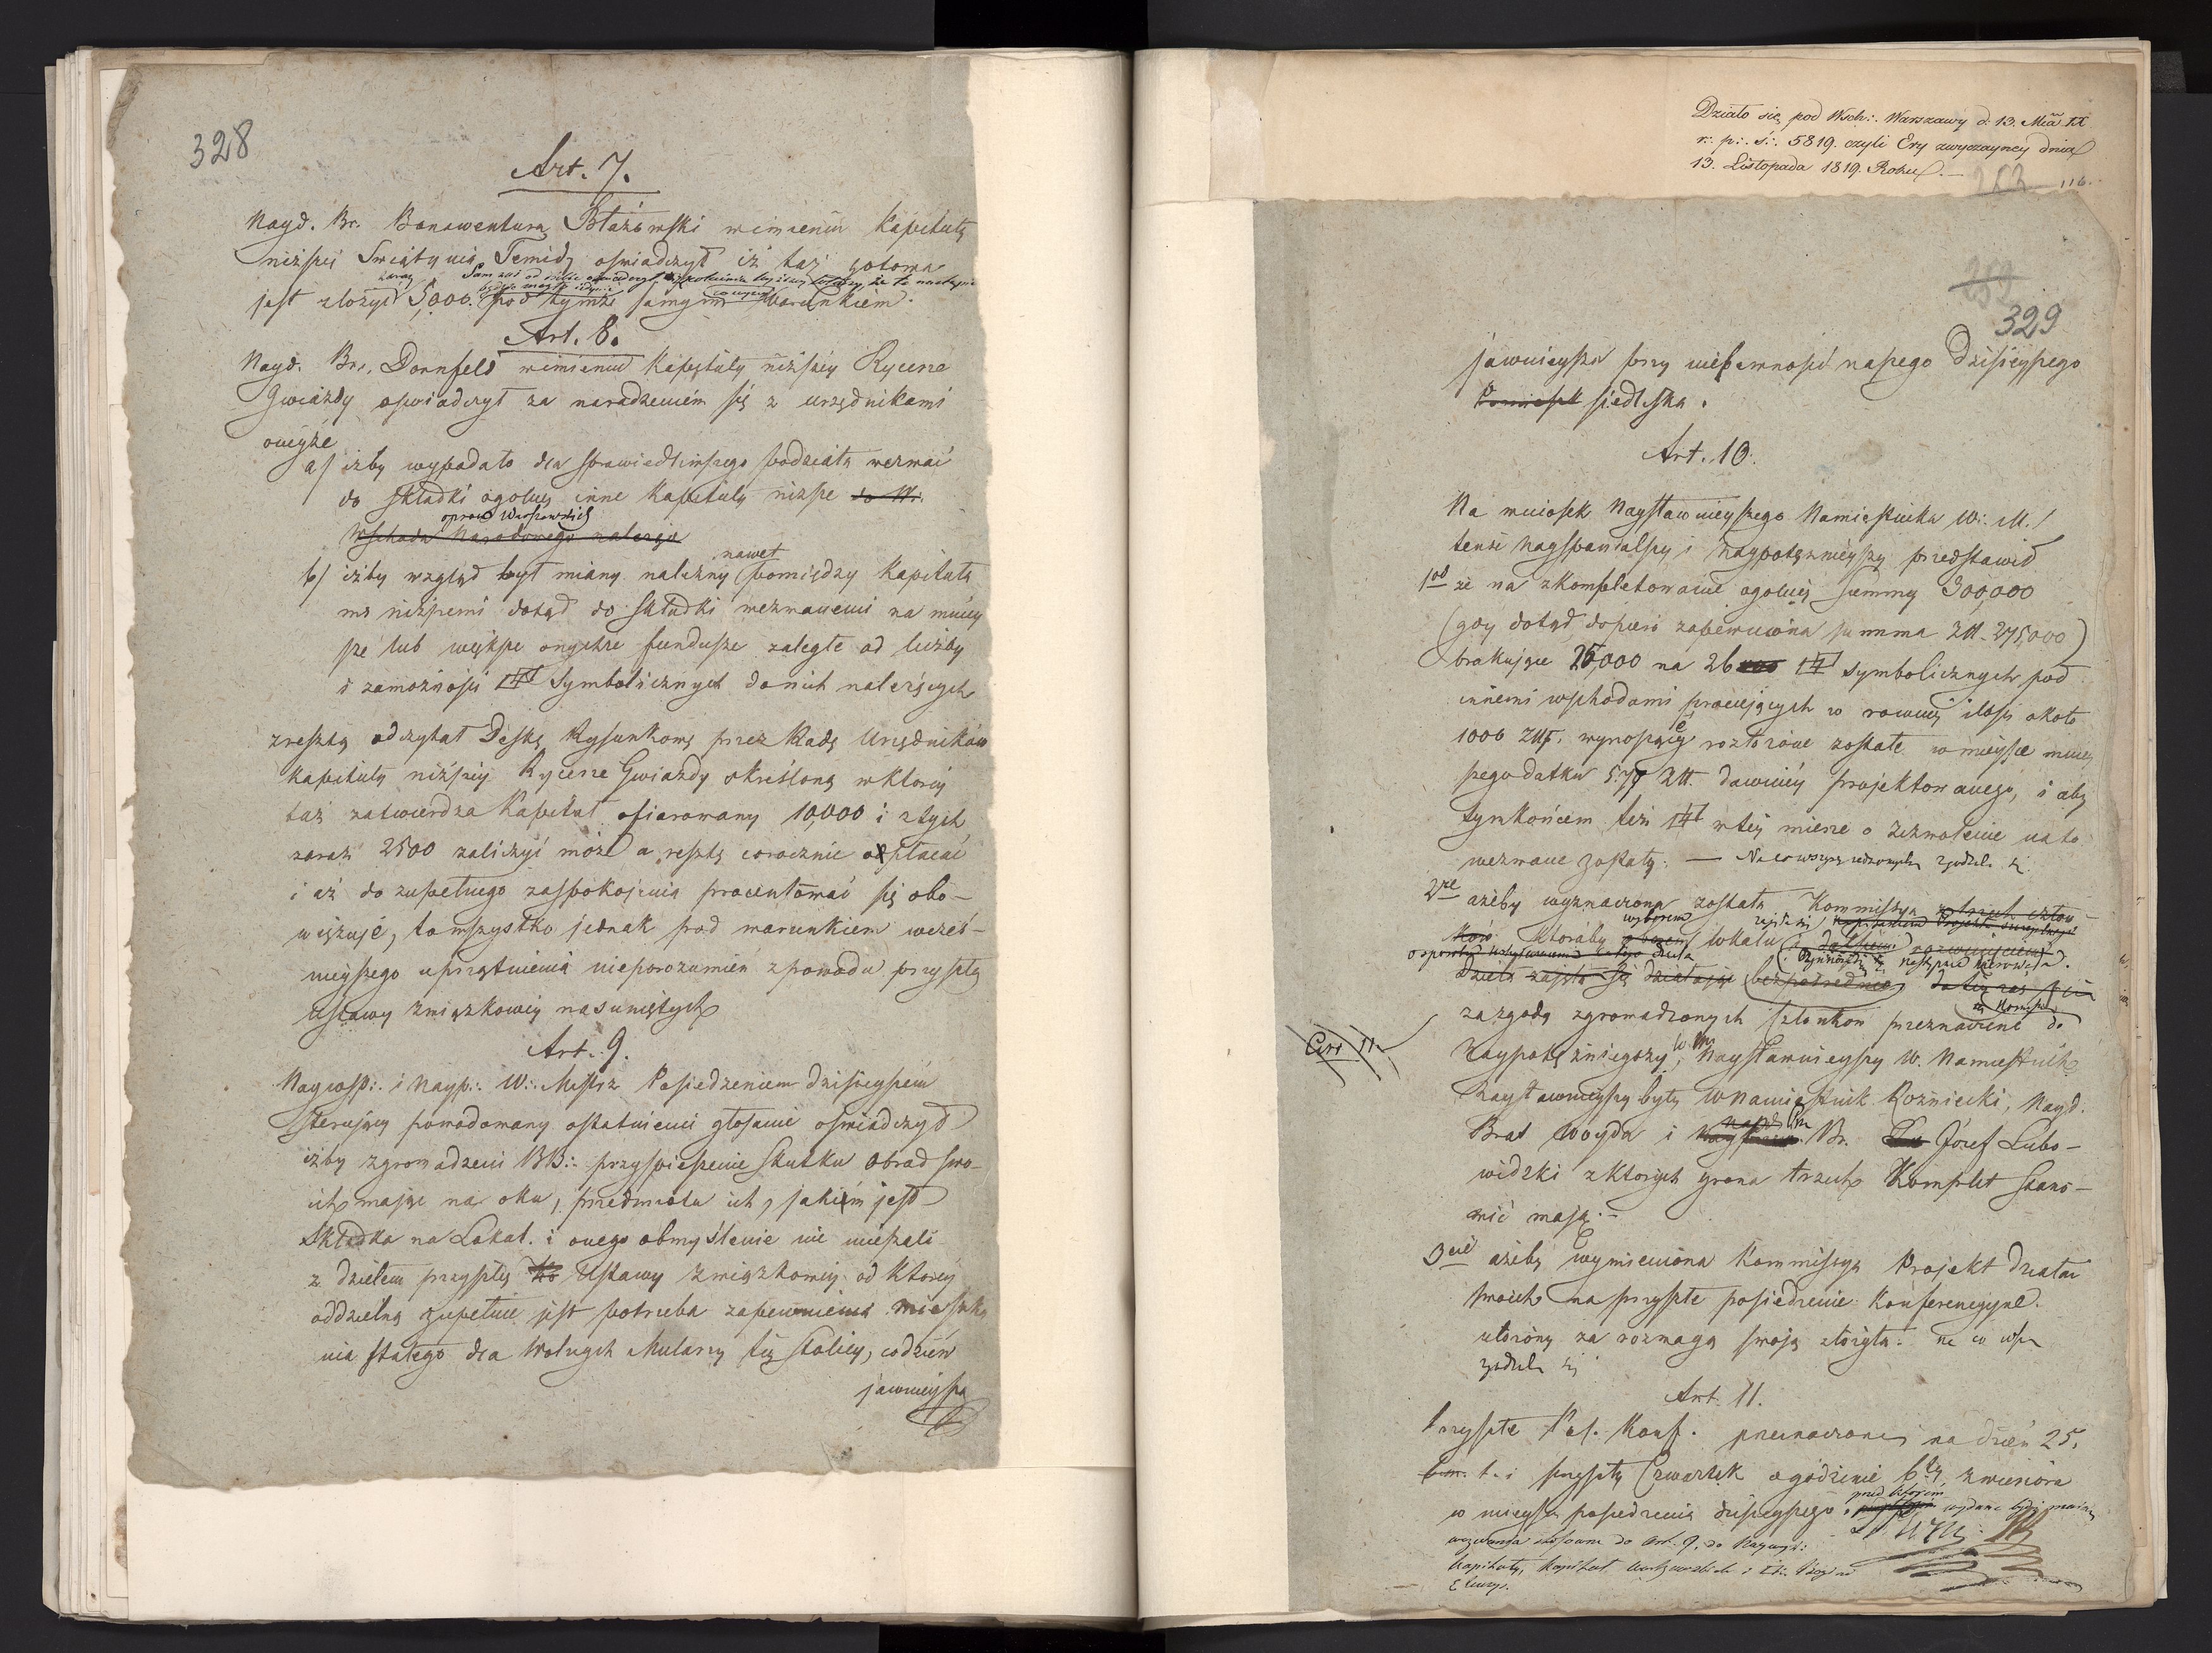 328
Art. 7.
Nayd. Br. Bonawentura Błażowski wimieniu Kapituły
niższey Świątynia Temidy oswiadczył iż taż gotowa
zaraz Sam zaś od siebie
jest złożyć 5,000. pod tymże samym warunkiem.
Art. 8.
Nayd. Br. Dornfeld wimieniu Kapituły niższey Rycerze
Gwiazdy oswiadczył za naradzeniem się z urzędnikami
oneyże
a/ iżby wypadało dla sprawiedliwszego podziału wezwać
do składki ogolney inne Kapituły niższe do W.
oprocz Warszawskich
Wschodu Narodowego należące
nawet
b/ iżby wzgląd był miany należny pomiędzy Kapituła
mi niższemi dotąd do składki wezwanemi na mniey
sze lub większe onychże fundusze zaległe od liczby
i zamożności symbolicznych do nich należących
zresztą odczytał Deskę Rysunkową przez Radę Urzędników
Kapituły niższey Rycerze Gwiazdy skreśloną w ktorey
taż zatwierdza Kapitał ofiarowany 10,000 i z tych
zaraz 2500 zaliczyć może a resztę corocznie opłacać
i aż do zupełnego zaspokojenia procentować się obo-
wiązuje, to wszystko jednak pod warunkiem wcześ-
nieyszego uprzątnienia nieporozumień z powodu przyszłey
Ustawy Związkowey nasuniętych
Art. 9.
Naywsp:. i Nayp:. W:. Mistrz Posiedzeniem dzisieyszem
sterujący powodowany ostatniemi głosami oświadczył
iżby zgromadzeni BB:. przyspieszenie skutku obrad swo-
ich mając na oku, przedmiotu ich, jakim jest
składka na Lokal. i onego obmyślenie nie mieszali
z dziełem przyszłey Ustawy Związkowey od ktorey
oddzielną zupełnie jest potrzeba zapewnienia mieszka
nia stałego dla Wolnych Mularzy tey stolicy, codzień
jawnieysza
Działo się pod Wsch:. Warszawy d. 13. Mca IX
r:. p:. ś:. 5819. czyli Ery zwyczayney dnia
13. Listopada 1819. Roku. —
116.
329
jawnieysza przy niepewności naszego dzisieyszego
siedliska.
Art. 10.
Na wniosek Naysławnieyszego Namiestnika W:. M./
tenże Nayspanialszy i Naypotężnieyszy przedstawił
1od że na zkompletowanie ogolney summy 300,000
(gdy dotąd dopiero zapewniona summa Złt. 275,000)
brakujące 25,000 na 26 symbolicznych pod
innemi wschodami pracujących w rowney ilości około
1000 Złt. wynoszącey rozłożone zostałe w mieysce mniey
szego datku 577 Złt. dawniey projektowanego, i aby
tym końcem też w tey mierze o zezwolenie na to
wezwane zostały. — Na co wszyscy zgodzili się
2re ażeby wyznaczona została Kommissya z trzech człon-
ków ktoraby wyborem lokalu
za zgodą zgromadzonych członkow przeznaczeni do
Art 11
Naypotężnieyszy, Naysławnieyszy W. Namiestnik
Naysławnieyszy były W Namiestnik Rożniecki, Nayd.
Brat Woyda i Br. Józef Lubo-
widzki z ktorych grona trzech Komplet stano-
wić mają. —
3cie ażeby wymieniona Kommissya Projekt działań
swoich na przyszłe posiedzenie Konferencyjne
ułożony za rozwagą swoją złożyła. na co wszy
zgodzili się
Art. 11.
Przyszłe Pos. Konf. przeznaczone na dzień 25.
b.m. t. i przyszły Czwartek o godzinie 6tey z wieczora
w mieyscu posiedzenia dzisieyszego, przed ktorem wydane będą
wezwania stosowne do Art. 9. do Naywyż:
Kapituły, Kapituł